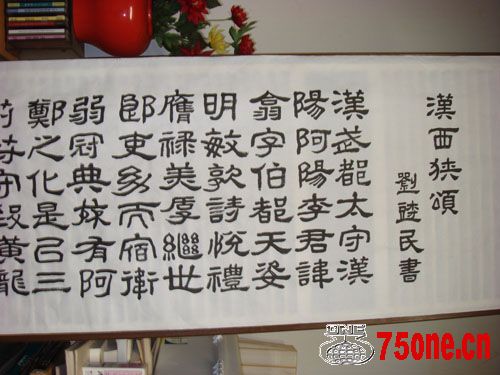 漢西狭頌
劉民書
漢武都太守漢
陽阿陽李君諱
翕字伯都天姿
明敏敦詩悅禮
膺祿美厚繼世
郎吏幼而宿衛
弱冠典城有阿
鄭之化是㠯三
守致黃龍
ONE
75one.cn